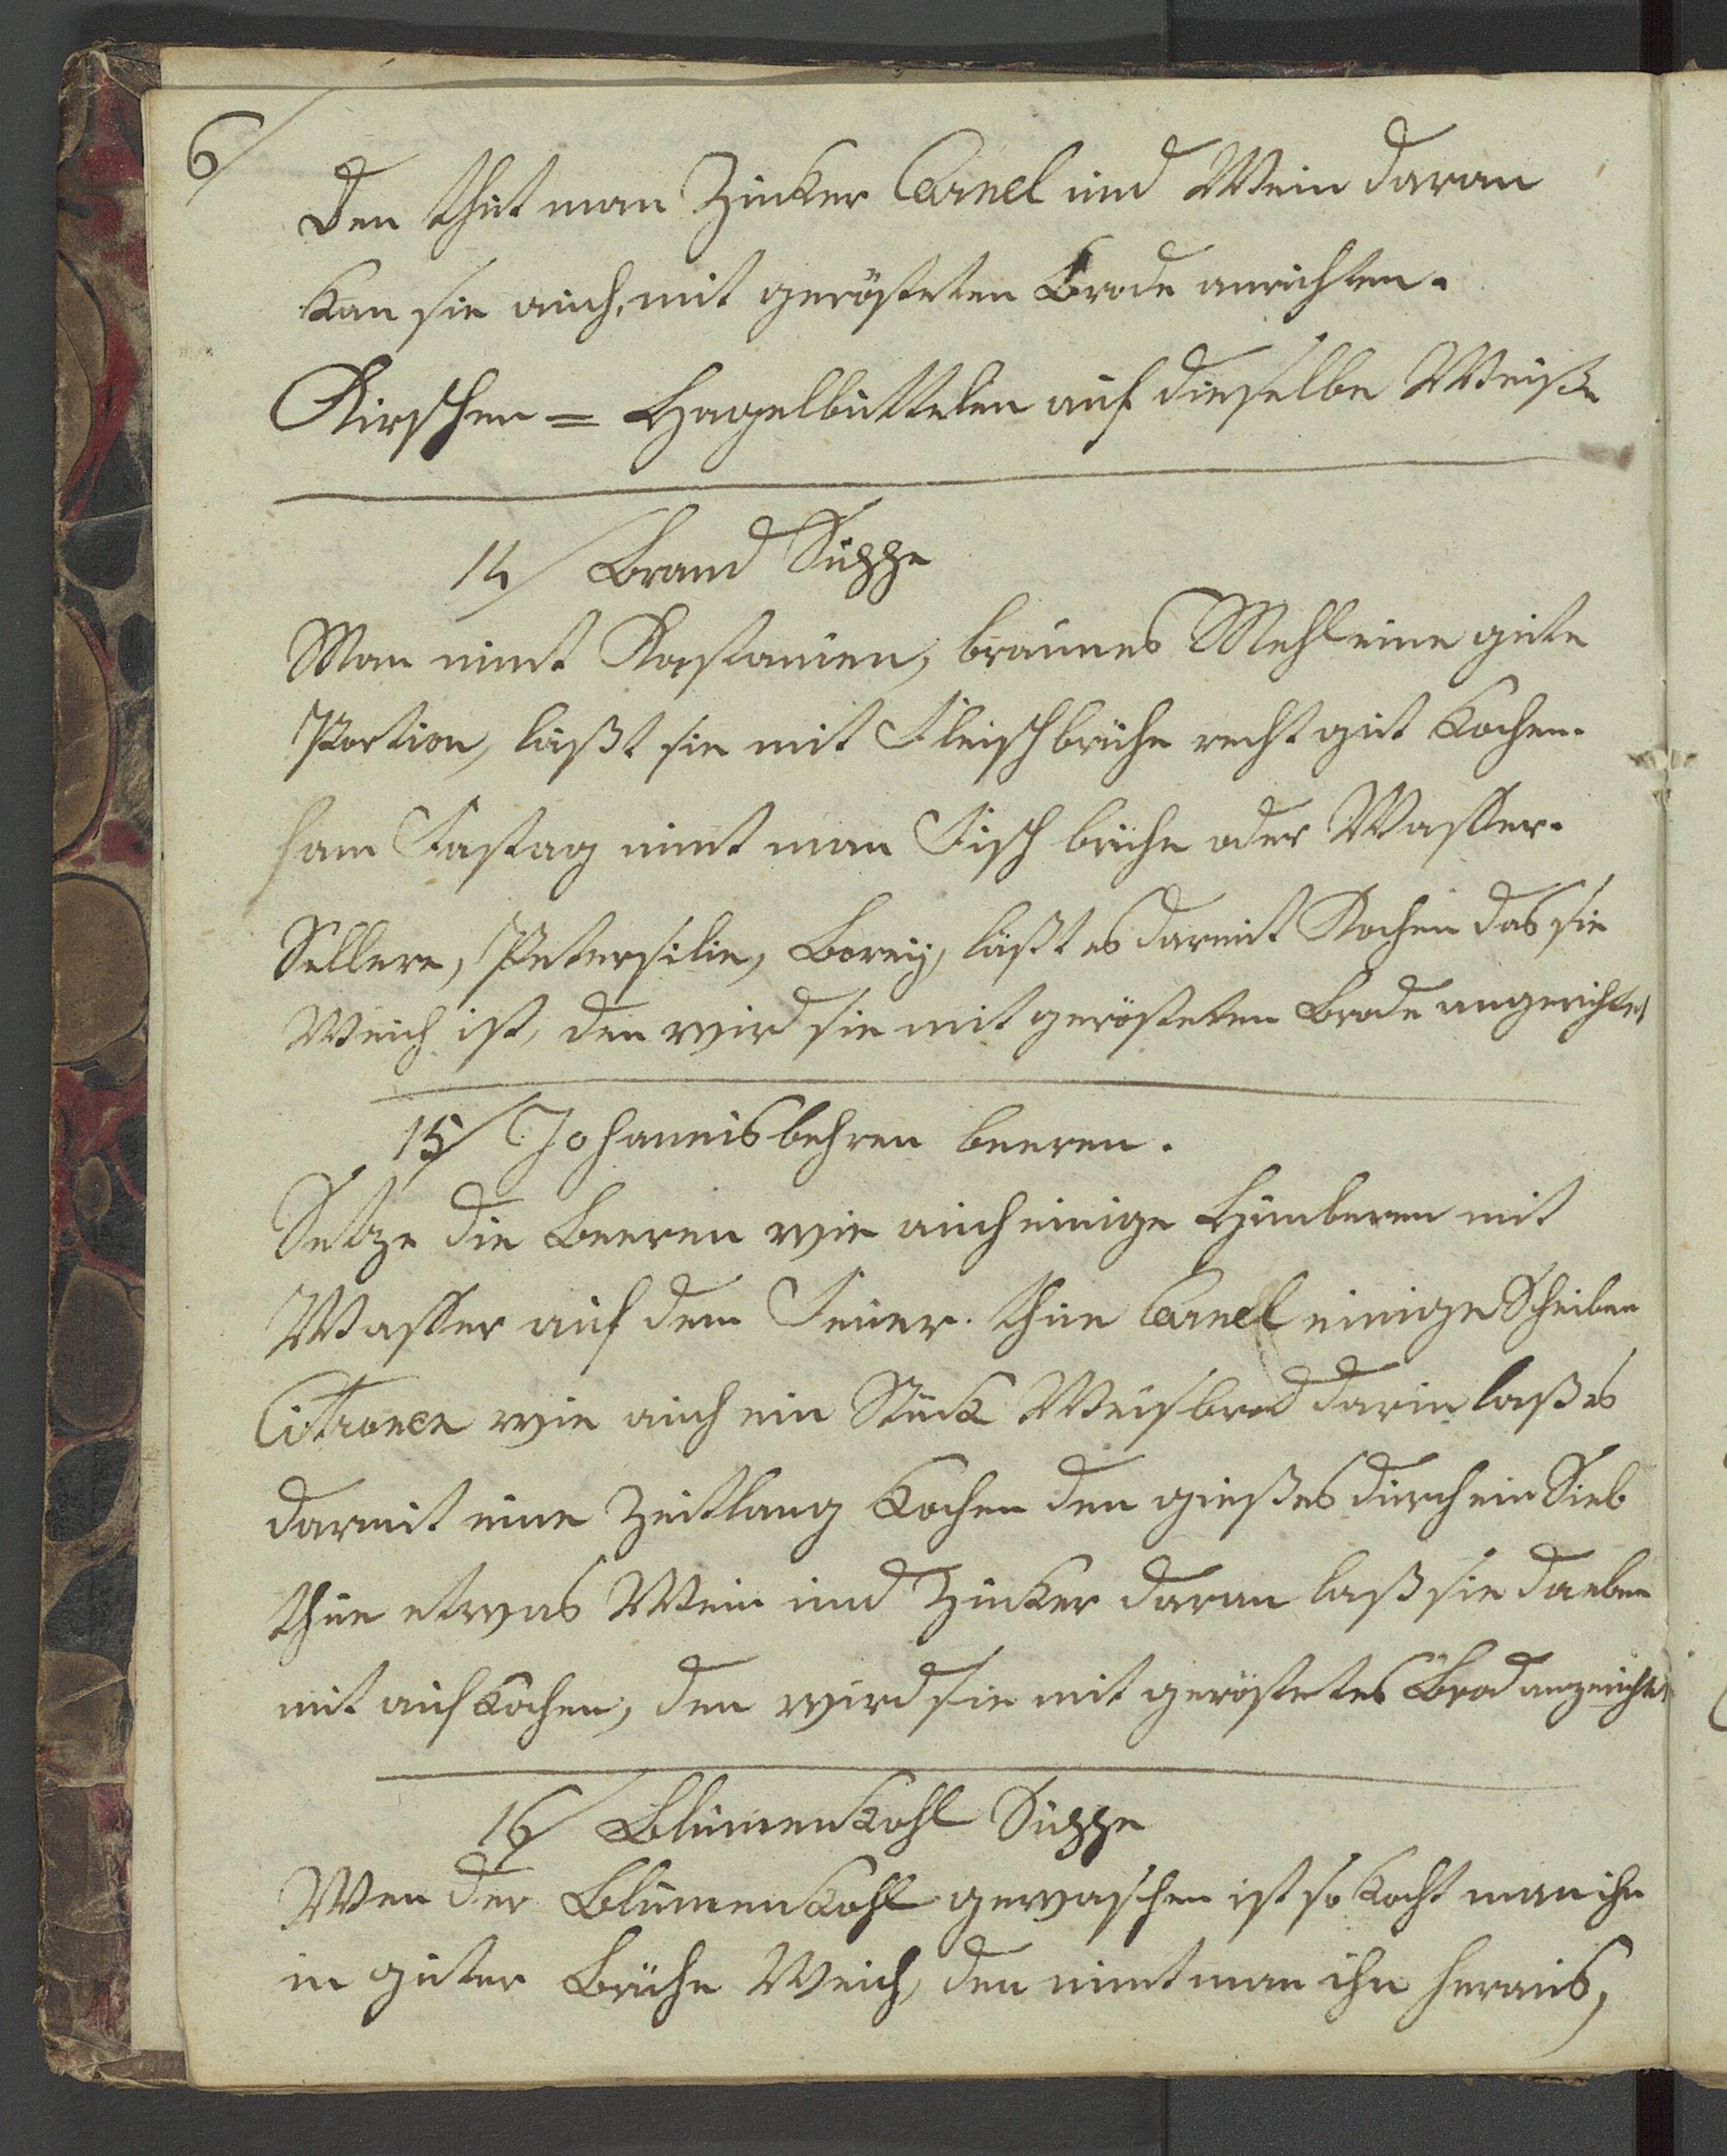 6/
Den thut man Zucker Canel und Wein daran
kan sie auch, mit gerösteten Brode anrichten.
Kirschen = Hagelbuttelen auf dieselbe Weiße
14/ Brand Suppe
Man nimt Kastanien, braunes Mehl eine gute
Portion, läßt sie mit Fleischbrühe recht gut kochen.
am Fastag nimt man Fisch brühe oder Wasser.
Sellere, Petersilie, läßt es darmit Kochen das sie
Weich ist, den wird sie mit gerösteten Brode angerichtet
15/ Johannisbehren beeren.
Setze die Beeren wie auch einige Himberen mit
Wasser auf dem Feuer. thue Canell einige Scheiben
Citronen wie auch ein Stück Weisbrod darin laß es
darmit eine Zeitlang kochen den gieß es durch ein Sieb
thue etwas Wein und Zucker daran laß sie daeben
mit aufkochen, den wird sie mit geröstetes Brod angerichtet
16/ Blumenkohl Suppe
Wen der Blumenkohl gewaschen ist so kocht man ihn
in guter Brühe Weich, den nimt man ihn heraus,